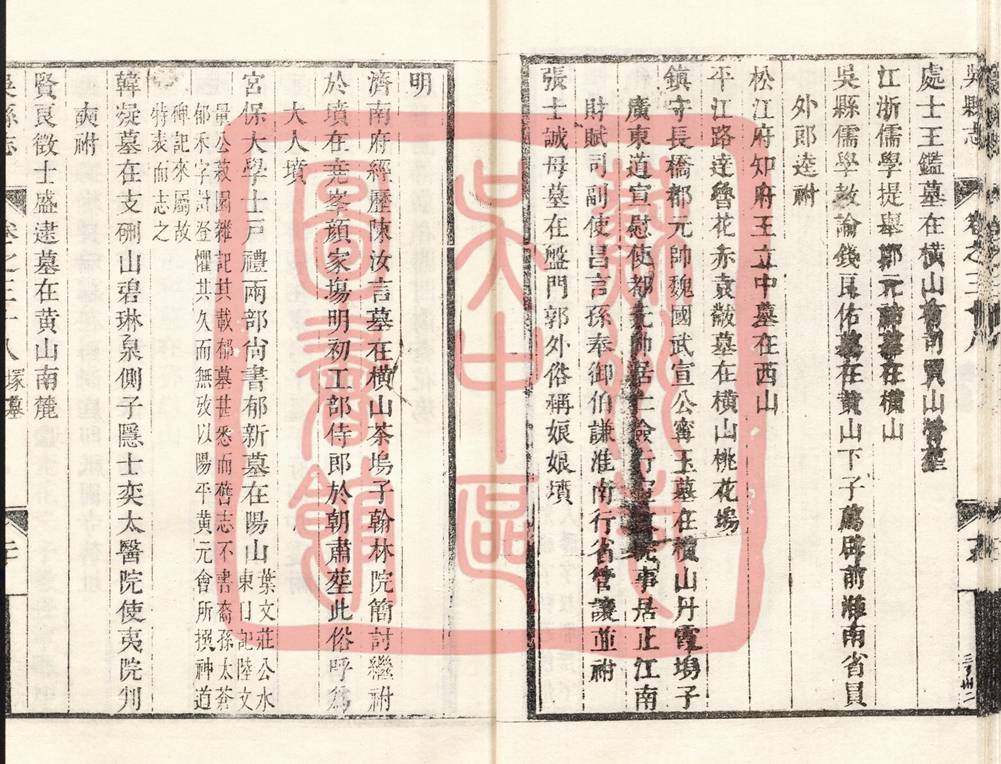 吳縣志 卷之三十八
處士王鑑墓在橫山
江浙儒學提舉鄭元祐墓在橫山
吳縣儒學教諭錢良佑墓在黄山下子萬
前淮南省員
外郎逵祔
松江府知府王立中墓在西山
平江路達魯花赤袁黻墓在橫山桃花塢
鎮守長橋都元帥魏國武宣公甯玉墓在橫山丹霞塢子
廣東道宣慰使都元帥居仁僉行
院事居正江南
財賦司副使昌言孫奉御伯謙淮南行省管讓並祔
張士誠母墓在盤門郭外俗稱娘娘墳
明
濟南府經歷陳汝言墓在橫山茶塢子翰林院簡討繼祔
於墳在堯峯顔家塢明初工部侍郎於朝肅塟此俗呼爲
大人墳
宮保大學士戸禮兩部尙書郁新墓在陽山
葉文莊公水
東日記陸文
量公菽園雜記其載郁墓甚悉而舊志不書裔孫太蒼
郁禾字計登懼其久而無攷以陽平黄元會所撰神道
碑記來屬故
特表而志之
韓凝墓在支硎山碧琳泉側子隱士奕太醫院使夷院判
奭祔
賢良徵士盛逮墓在黄山南麓
吳縣志 卷之三十八 塚墓
瀏湖數
吳中區
圖書館